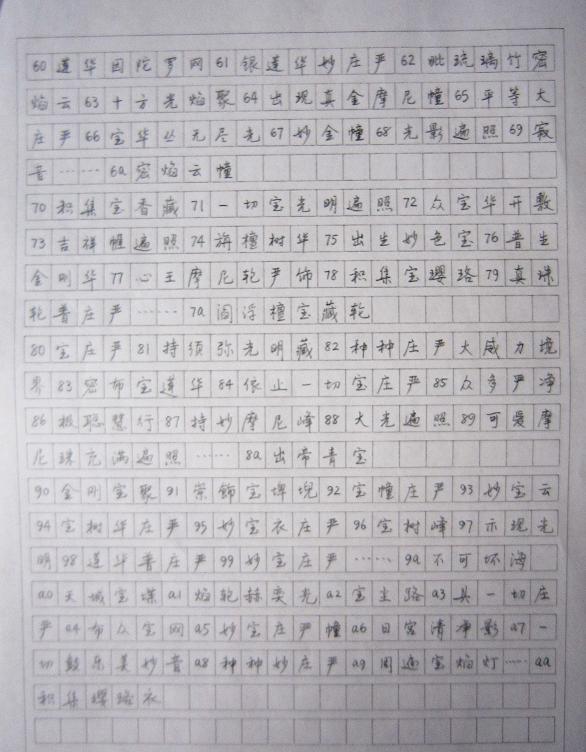 60 莲华因陀罗网 61 银莲华妙庄严 62 毗琉璃竹密
焰云 63 十方光焰聚 64 出现真金摩尼幢 65 平等大
庄严 66 宝华丛无尽光 67 妙金幢 68 光影遍照 69 寂
音 …… 6a 密焰云幢
70 积集宝香藏 71 一切宝光明遍照 72 众宝华开敷
73 吉祥幄遍照 74 旃檀树华 75 出生妙色宝 76 普生
金刚华 77 心王摩尼轮严饰 78 积集宝璎珞 79 真珠
轮普庄严 …… 7a 阎浮檀宝藏轮
80 宝庄严 81 持须弥光明藏 82 种种庄严大威力境
界 83 密布宝莲华 84 依止一切宝庄严 85 众多严净
86 极聪慧行 87 持妙摩尼峰 88 大光遍照 89 可爱摩
尼珠充满遍照 …… 8a 出帝青宝
90 金刚宝聚 91 崇饰宝埤堄 92 宝幢庄严 93 妙宝云
94 宝树华庄严 95 妙宝衣庄严 96 宝树峰 97 示现光
明 98 莲华普庄严 99 妙宝庄严 …… 9a 不可坏海
a0 天城宝堞 a1 焰轮赫奕光 a2 宝尘路 a3 具一切庄
严 a4 布众宝网 a5 妙宝庄严幢 a6 日宫清净影 a7 一
切鼓乐美妙音 a8 种种妙庄严 a9 周遍宝焰灯 …… aa
积集璎珞衣